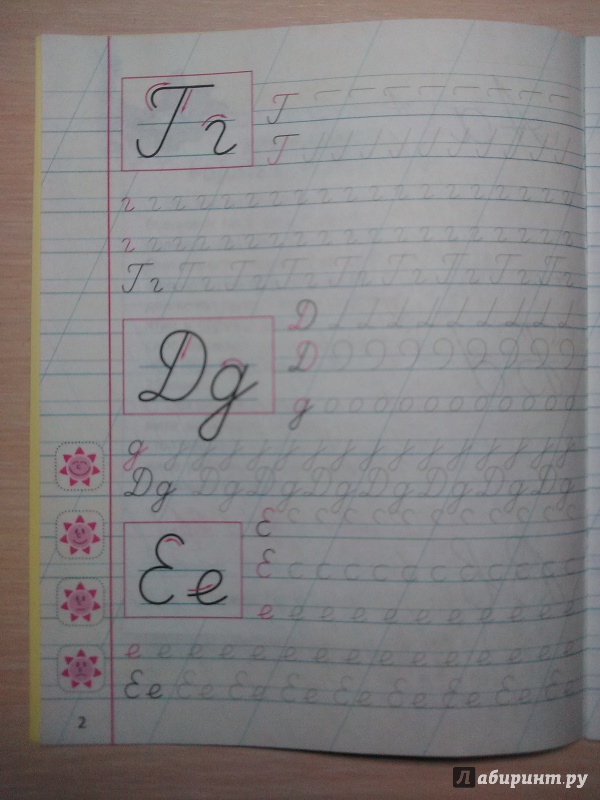 Гг
Г
Г
г г г г г г г г г г г г г г г г г г г
г г г г г г г г г г г г г г г г г г г
Гг Гг Гг Гг Гг Гг Гг Гг Гг
Дд
Д
Д
д
д
Дд Дд Дд Дд Дд Дд Дд Дд Дд
Ее
Е
Е
е е е е е е е е е е е
е е е е е е е е е е е е е е е
Ее Ее Ее Ее Ее Ее Ее Ее Ее
2
Лабиринт.ру